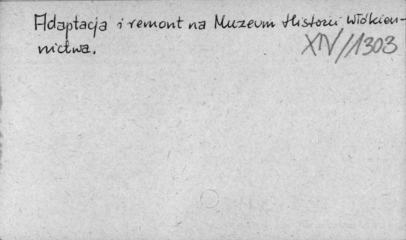 Adaptacja i remont na Muzeum Historii Włókien-
nictwa.
XIV/1303